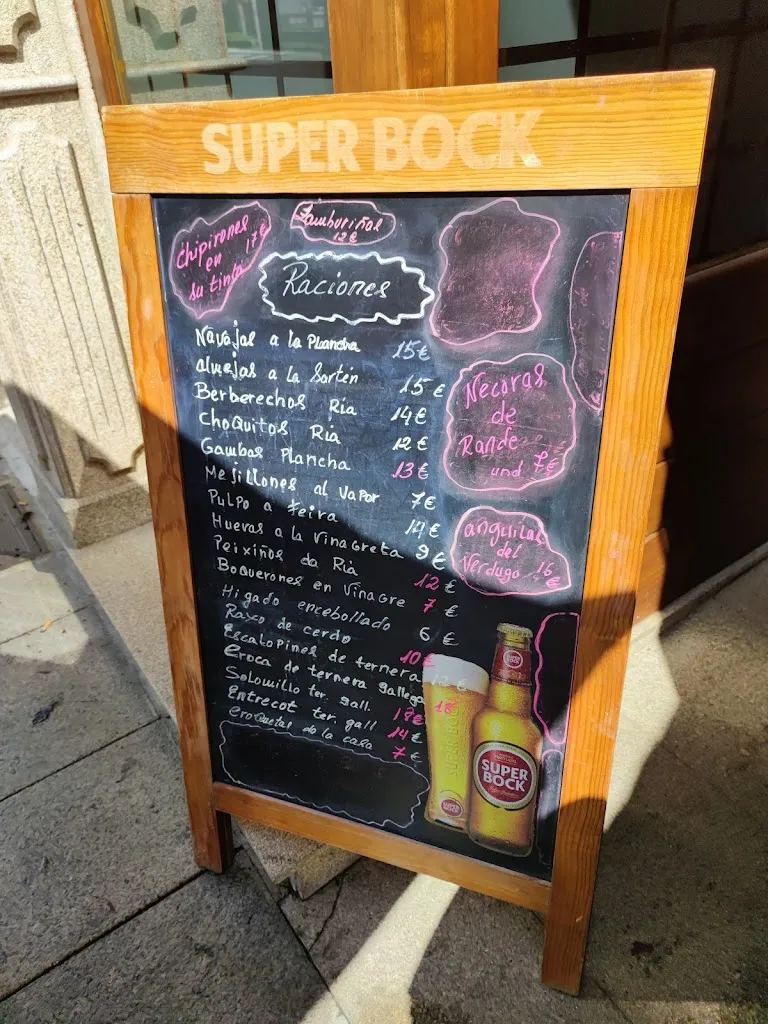 SUPER BOCK
Chipirones
en 17€
su tinta
Zamburiñas
12€
Raciones
Navajas a la Plancha 15€
Almejas a la Sartén 15€
Berberechos Ria 14€
Choquitos Ria 12€
Gambas Plancha 13€
Mejillones al vapor 7€
Pulpo a feira 14€
Huevas a la Vinagreta 9€
Peixiños da Ria 12€
Boquerones en Vinagre 7€
Higado encebollado 6€
Raxo de cerdo 10€
Escalopines de ternera 12€
Croca de ternera gallega 18
Solomillo ter. gall. 18€
Entrecot ter. gall 14€
Croquetas de la casa 7€
Necoras
de
Rande
und 7€
anguilas
del
Verdugo 16
€
SUPER BOCK
SUPER
BOCK